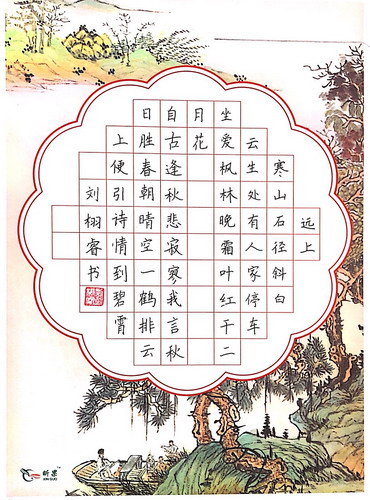 远上
寒山石径斜白
云生处有人家停车
坐爱枫林晚霜叶红于二
月花
自古逢秋悲寂寥我言秋
日胜春朝晴空一鹤排云
上便引诗情到碧霄
刘栩睿书
昕果
XIN GUO